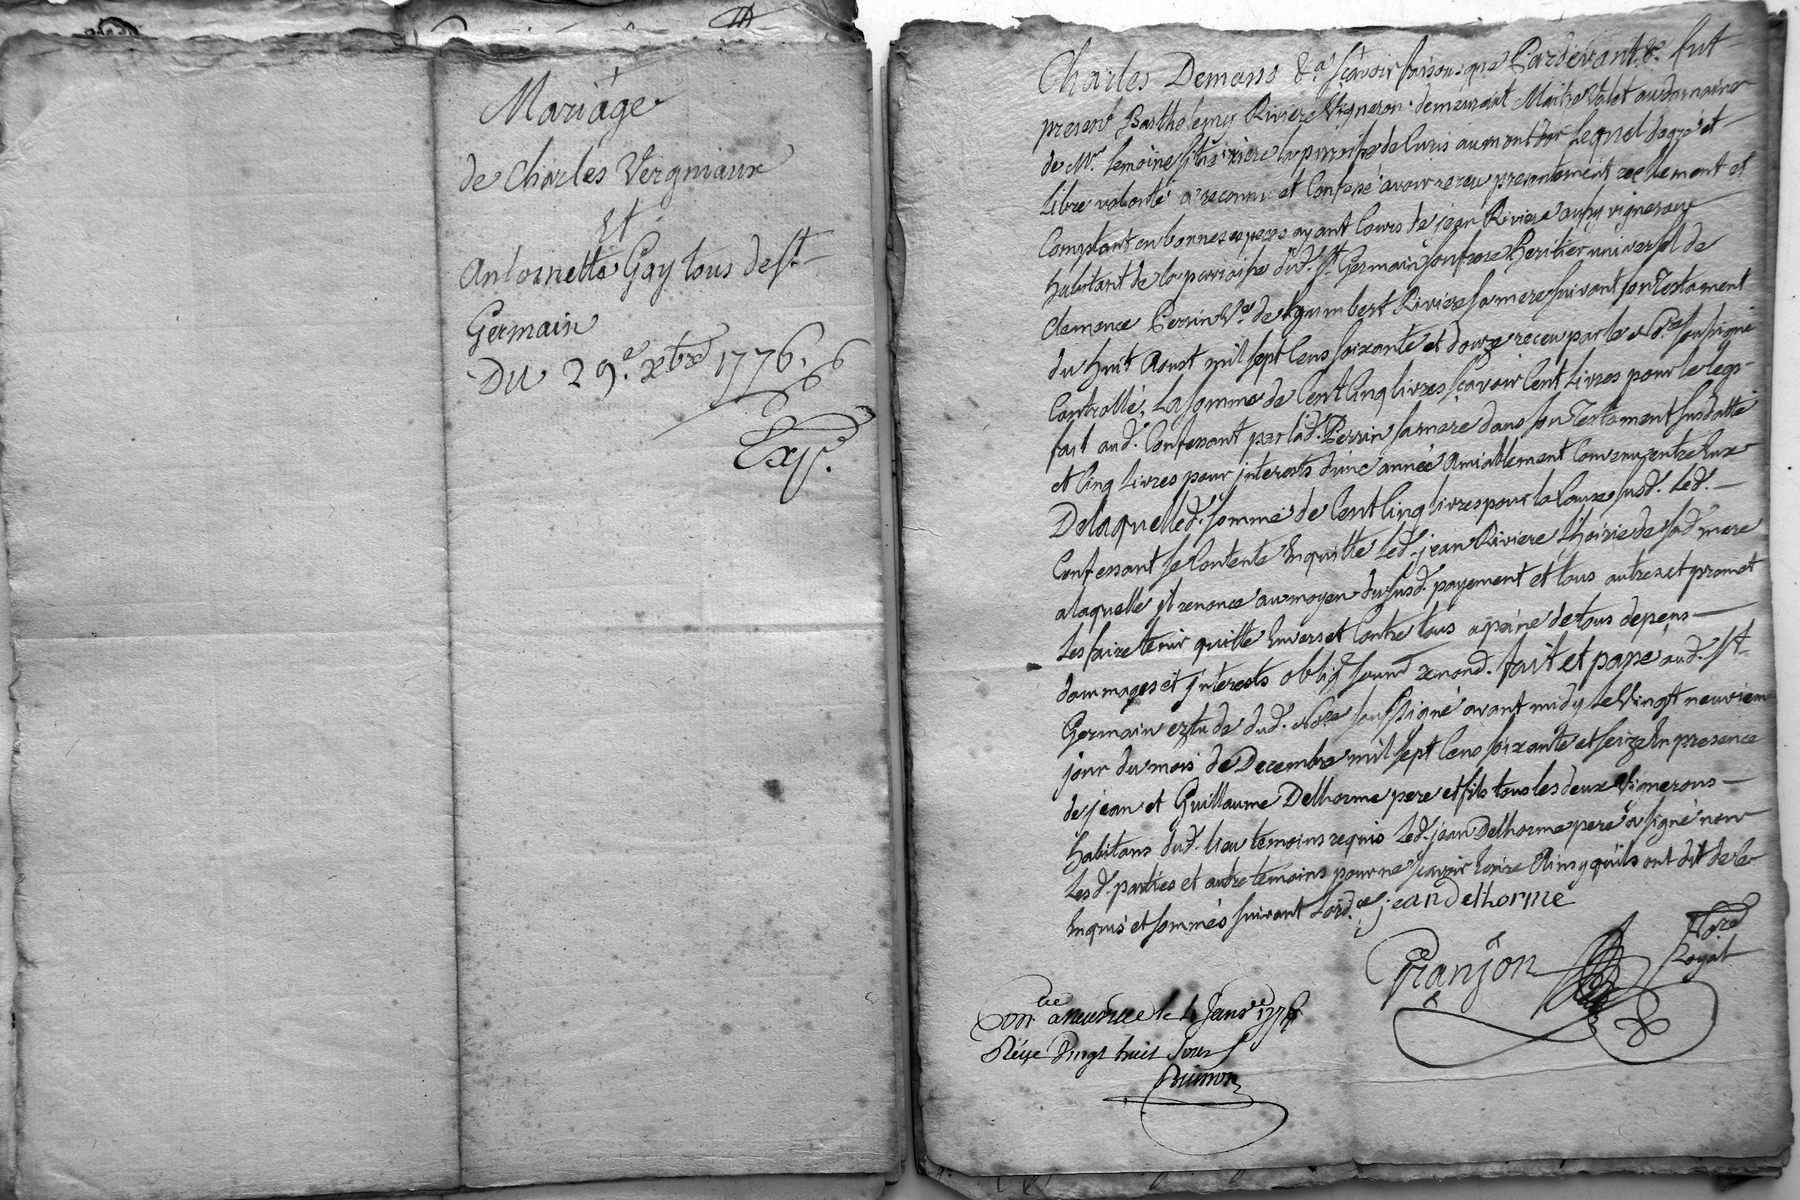 Mariage
de Charles Vergniaux
Et
Antoinette Gay tous de St.
Germain
Du 29e. xbre 1776.
Exp.
Charles Demans &a. sçavoir faisons que Pardevant &. fut
present Barthelemy Riviere Vigneron demeurant Maitre Valet au domaine
de Mr. Lemoine situé riere la parroisse de Curis au mont dor lequel de gré et
libre volonté a reconnu et Confessé avoir receu presentement reellement et
Comptant en bonnes especes ayant Cours de jean Riviere aussy vigneron
habitant de la parroisse dud. St. Germain son frere heritier universel de
clemence Perrin Ve. de humbert Riviere sa mere suivant son Testament
du huit Aoust mil sept Cens soixante et douze receu par le Nore soussigné
Controllé, La somme de Cent Cinq livres sçavoir Cent Livres pour le legs
fait aud. Confessant par lad. Perrin sa mere dans son Testament susdatté
et Cinq Livres pour jnterests d'une année Amiablement Convenu entre Eux
De laquelle d. somme de Cent Cinq livres pour la Cause susd. Led.
Confessant se Contente Enquitte Led. jean Riviere L'hoirie de sad. mere
a laquelle jl renonce au moyen du susd. payement et tous autres et promet
Les faire tenir quitte Envers et Contre tous a peine de tous depens
dommages et jnterests oblig. soum. renond. fait et passé aud. St.
Germain estude dud. Nore soussigné avant midy le Vingt neuvieme
jour du mois de Decembre mil sept Cens soixante et seize En presence
de jean et Guillaume Delhorme pere et fils tous les deux Vignerons
habitans dud. lieu temoins requis Led. jean Delhorme pere a signé non
Les d. parties et autre temoins pour ne sçavoir Ecrire Ainsy qu'ils ont dit de ce
Enquis et sommés suivant Lord.ce jean Delhorme
Pranjon Nore
Royal
Conlle a neuville le Janer
Reçu Vingt huit sous
Brunon